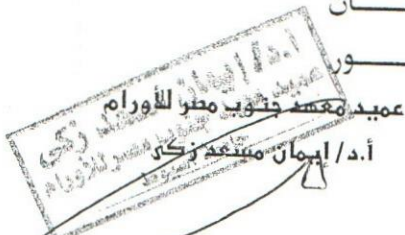 ـــــان
ـــــور
عميد معهد جنوب مصر للأورام
أ.د/ إيمان مسعد زكى
أ.د/ إيمان مسعد زكى
عميد معهد جنوب مصر للأورام